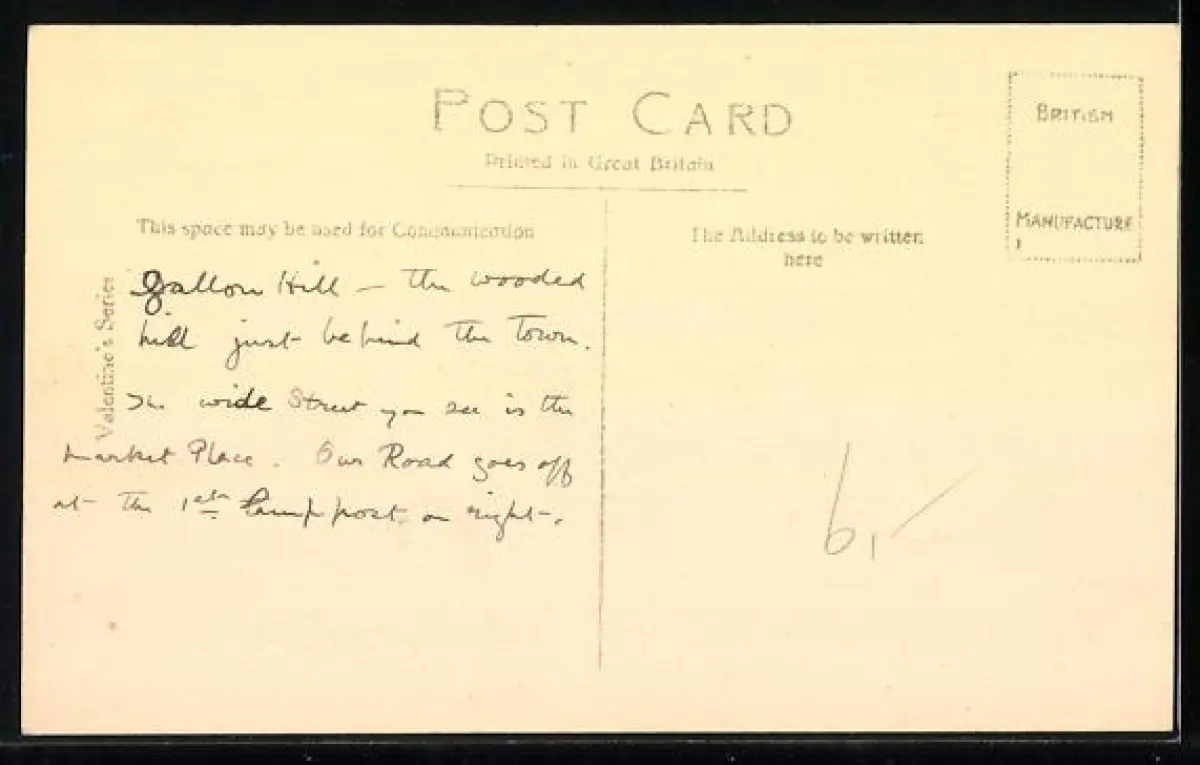 POST CARD
Printed in Great Britain
BRITISH
MANUFACTURE
This space may be used for Communication
The Address to be written
here
Valentine's Series
Gallow Hill – the wooded
hill just behind the Town.
The wide Street you see is the
Market Place. Our Road goes off
at the 1st lamp post on right.
6,-